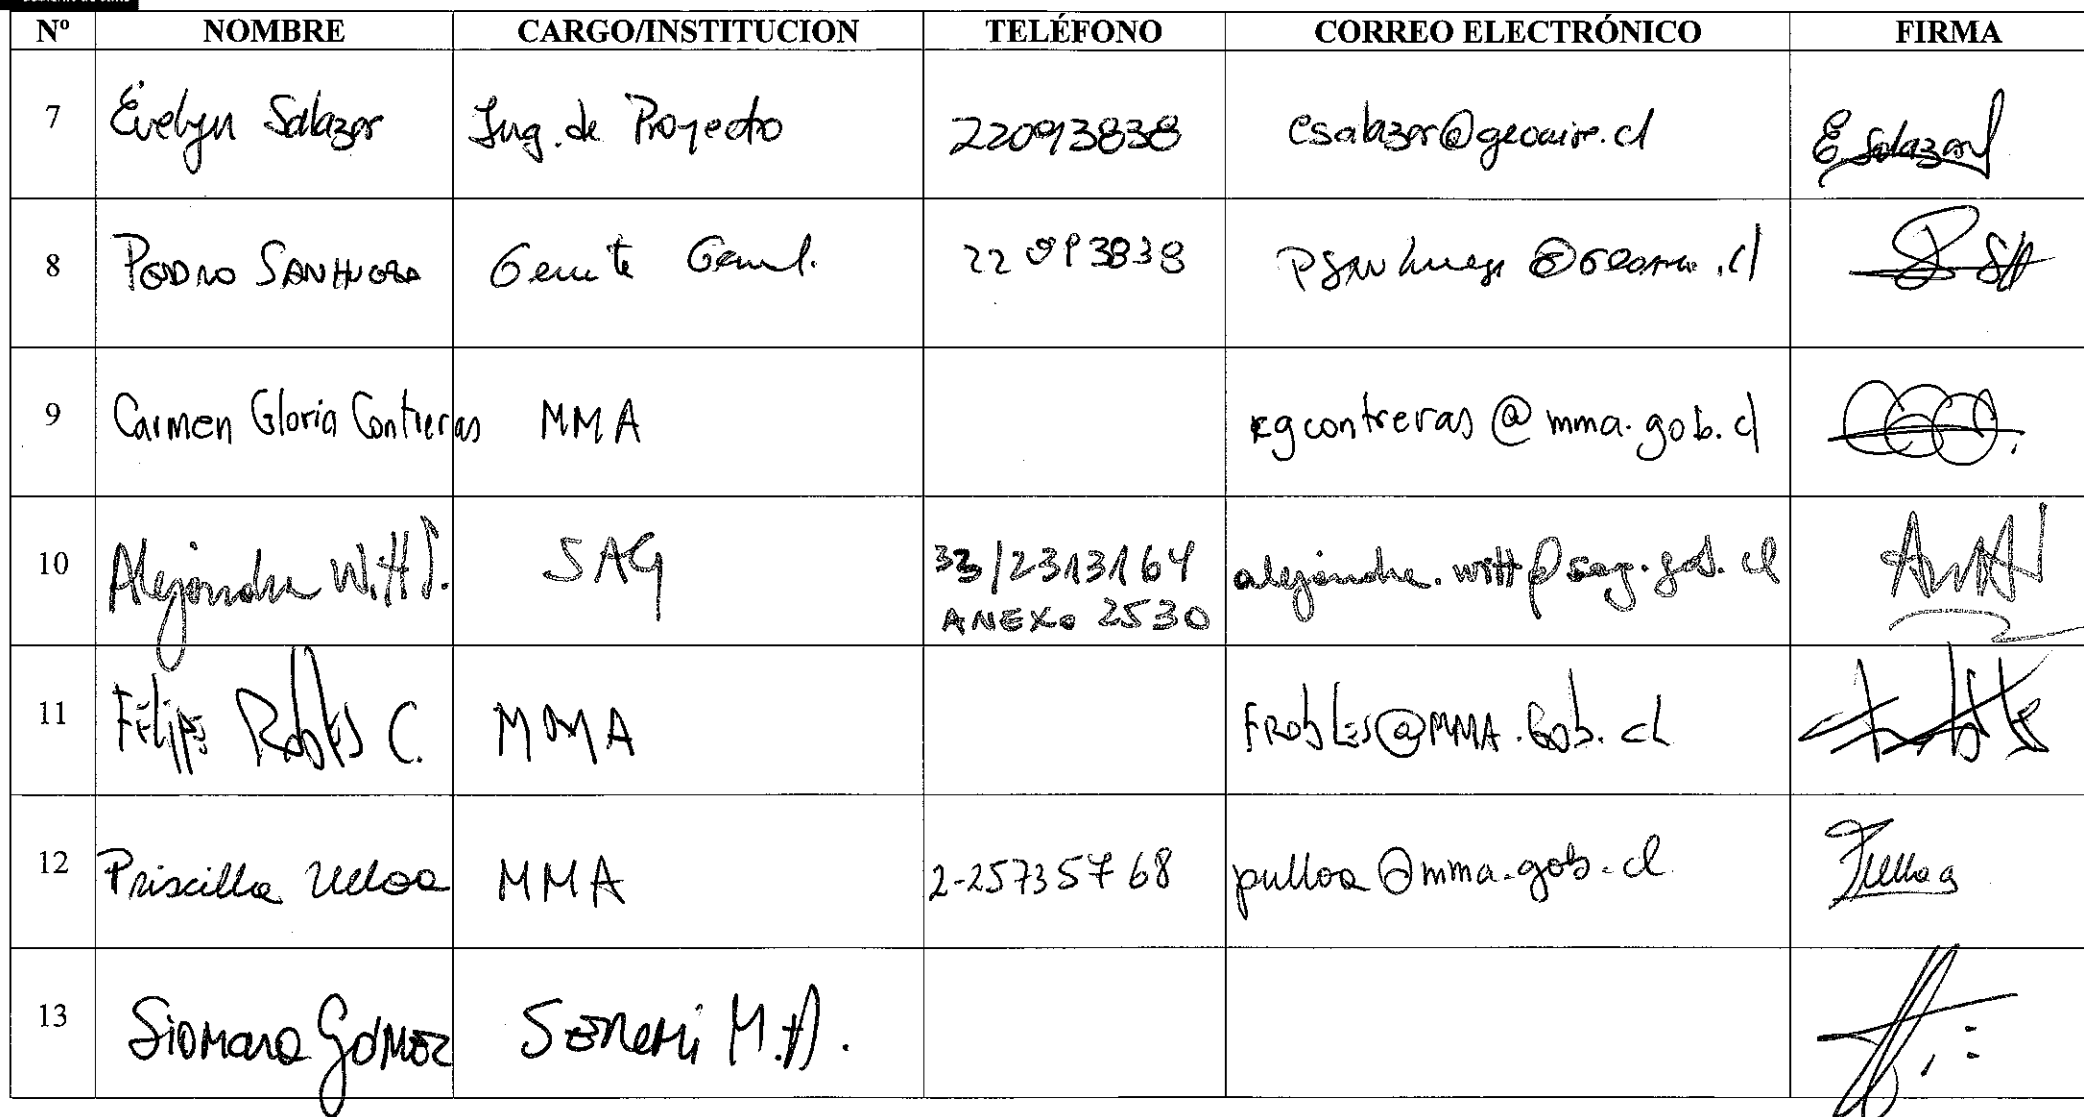 Nº NOMBRE CARGO/INSTITUCION TELÉFONO CORREO ELECTRÓNICO FIRMA
7 Evelyn Salazar Ing. de Proyecto 22093838 esalazar@geoaire.cl E Salazar
8 PEDRO SANHUEZA Gerente General. 22093838
9 Carmen Gloria Contreras MMA cgcontreras@mma.gob.cl
10 Alejandra Witt S. SAG 33/2313164 alejandra.witt@sag.gob.cl
ANEXO 2530
11 Felipe Robles C. MMA FRobles@MMA.Gob.cl
12 Priscilla Ulloa MMA 2-25735768 pulloa@mma.gob.cl PUlloa
13 Siomara Gómez SEREMI M.A.